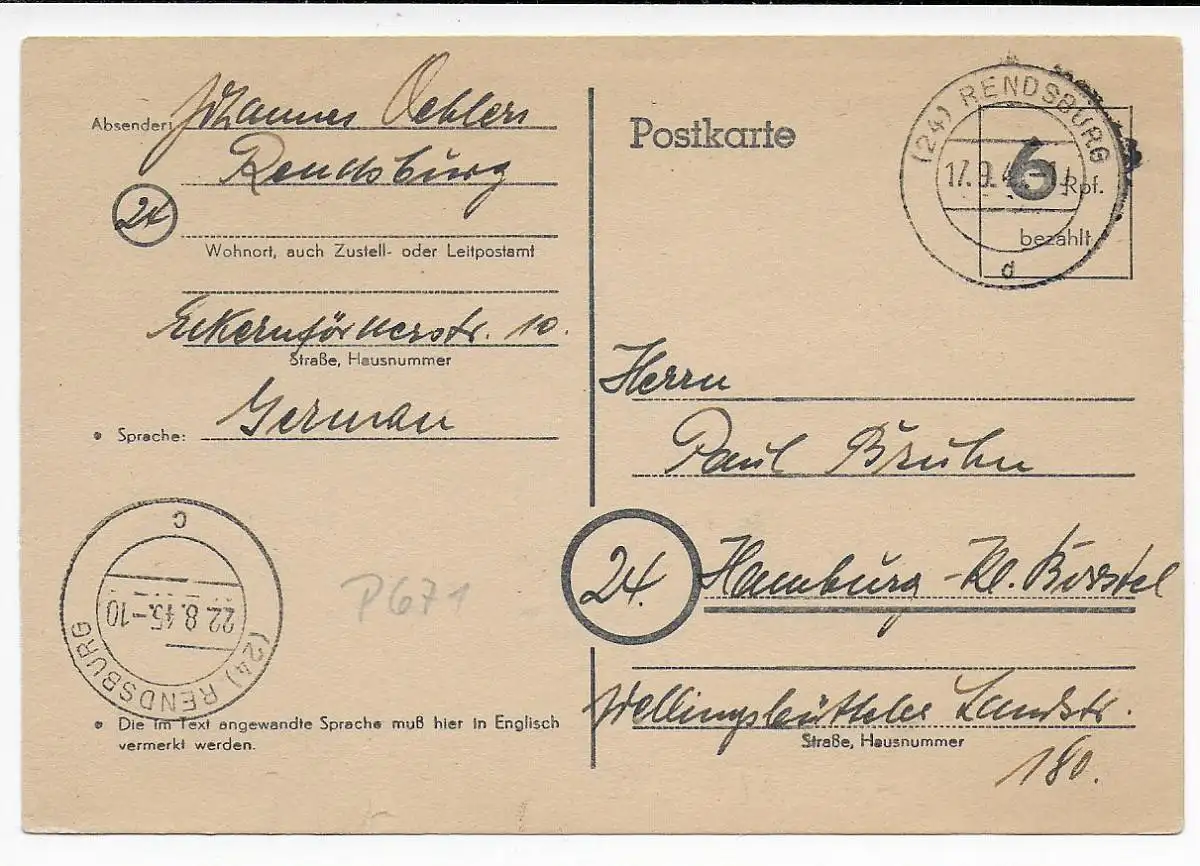 Absender: Johannes Oehlers
Rendsburg
24
Wohnort, auch Zustell- oder Leitpostamt
Eckernförderstr. 10.
Straße, Hausnummer
• Sprache: German
c
22.8.45.-10
(24) RENDSBURG
P671
• Die im Text angewandte Sprache muß hier in Englisch
vermerkt werden.
Postkarte
(24) RENDSBURG
17.9.4
d
6
Rpf.
bezahlt
Herrn
Paul Bruhn
24. Hamburg-Kl. Borstel
Wellingsbütteler Landstr.
Straße, Hausnummer
180.